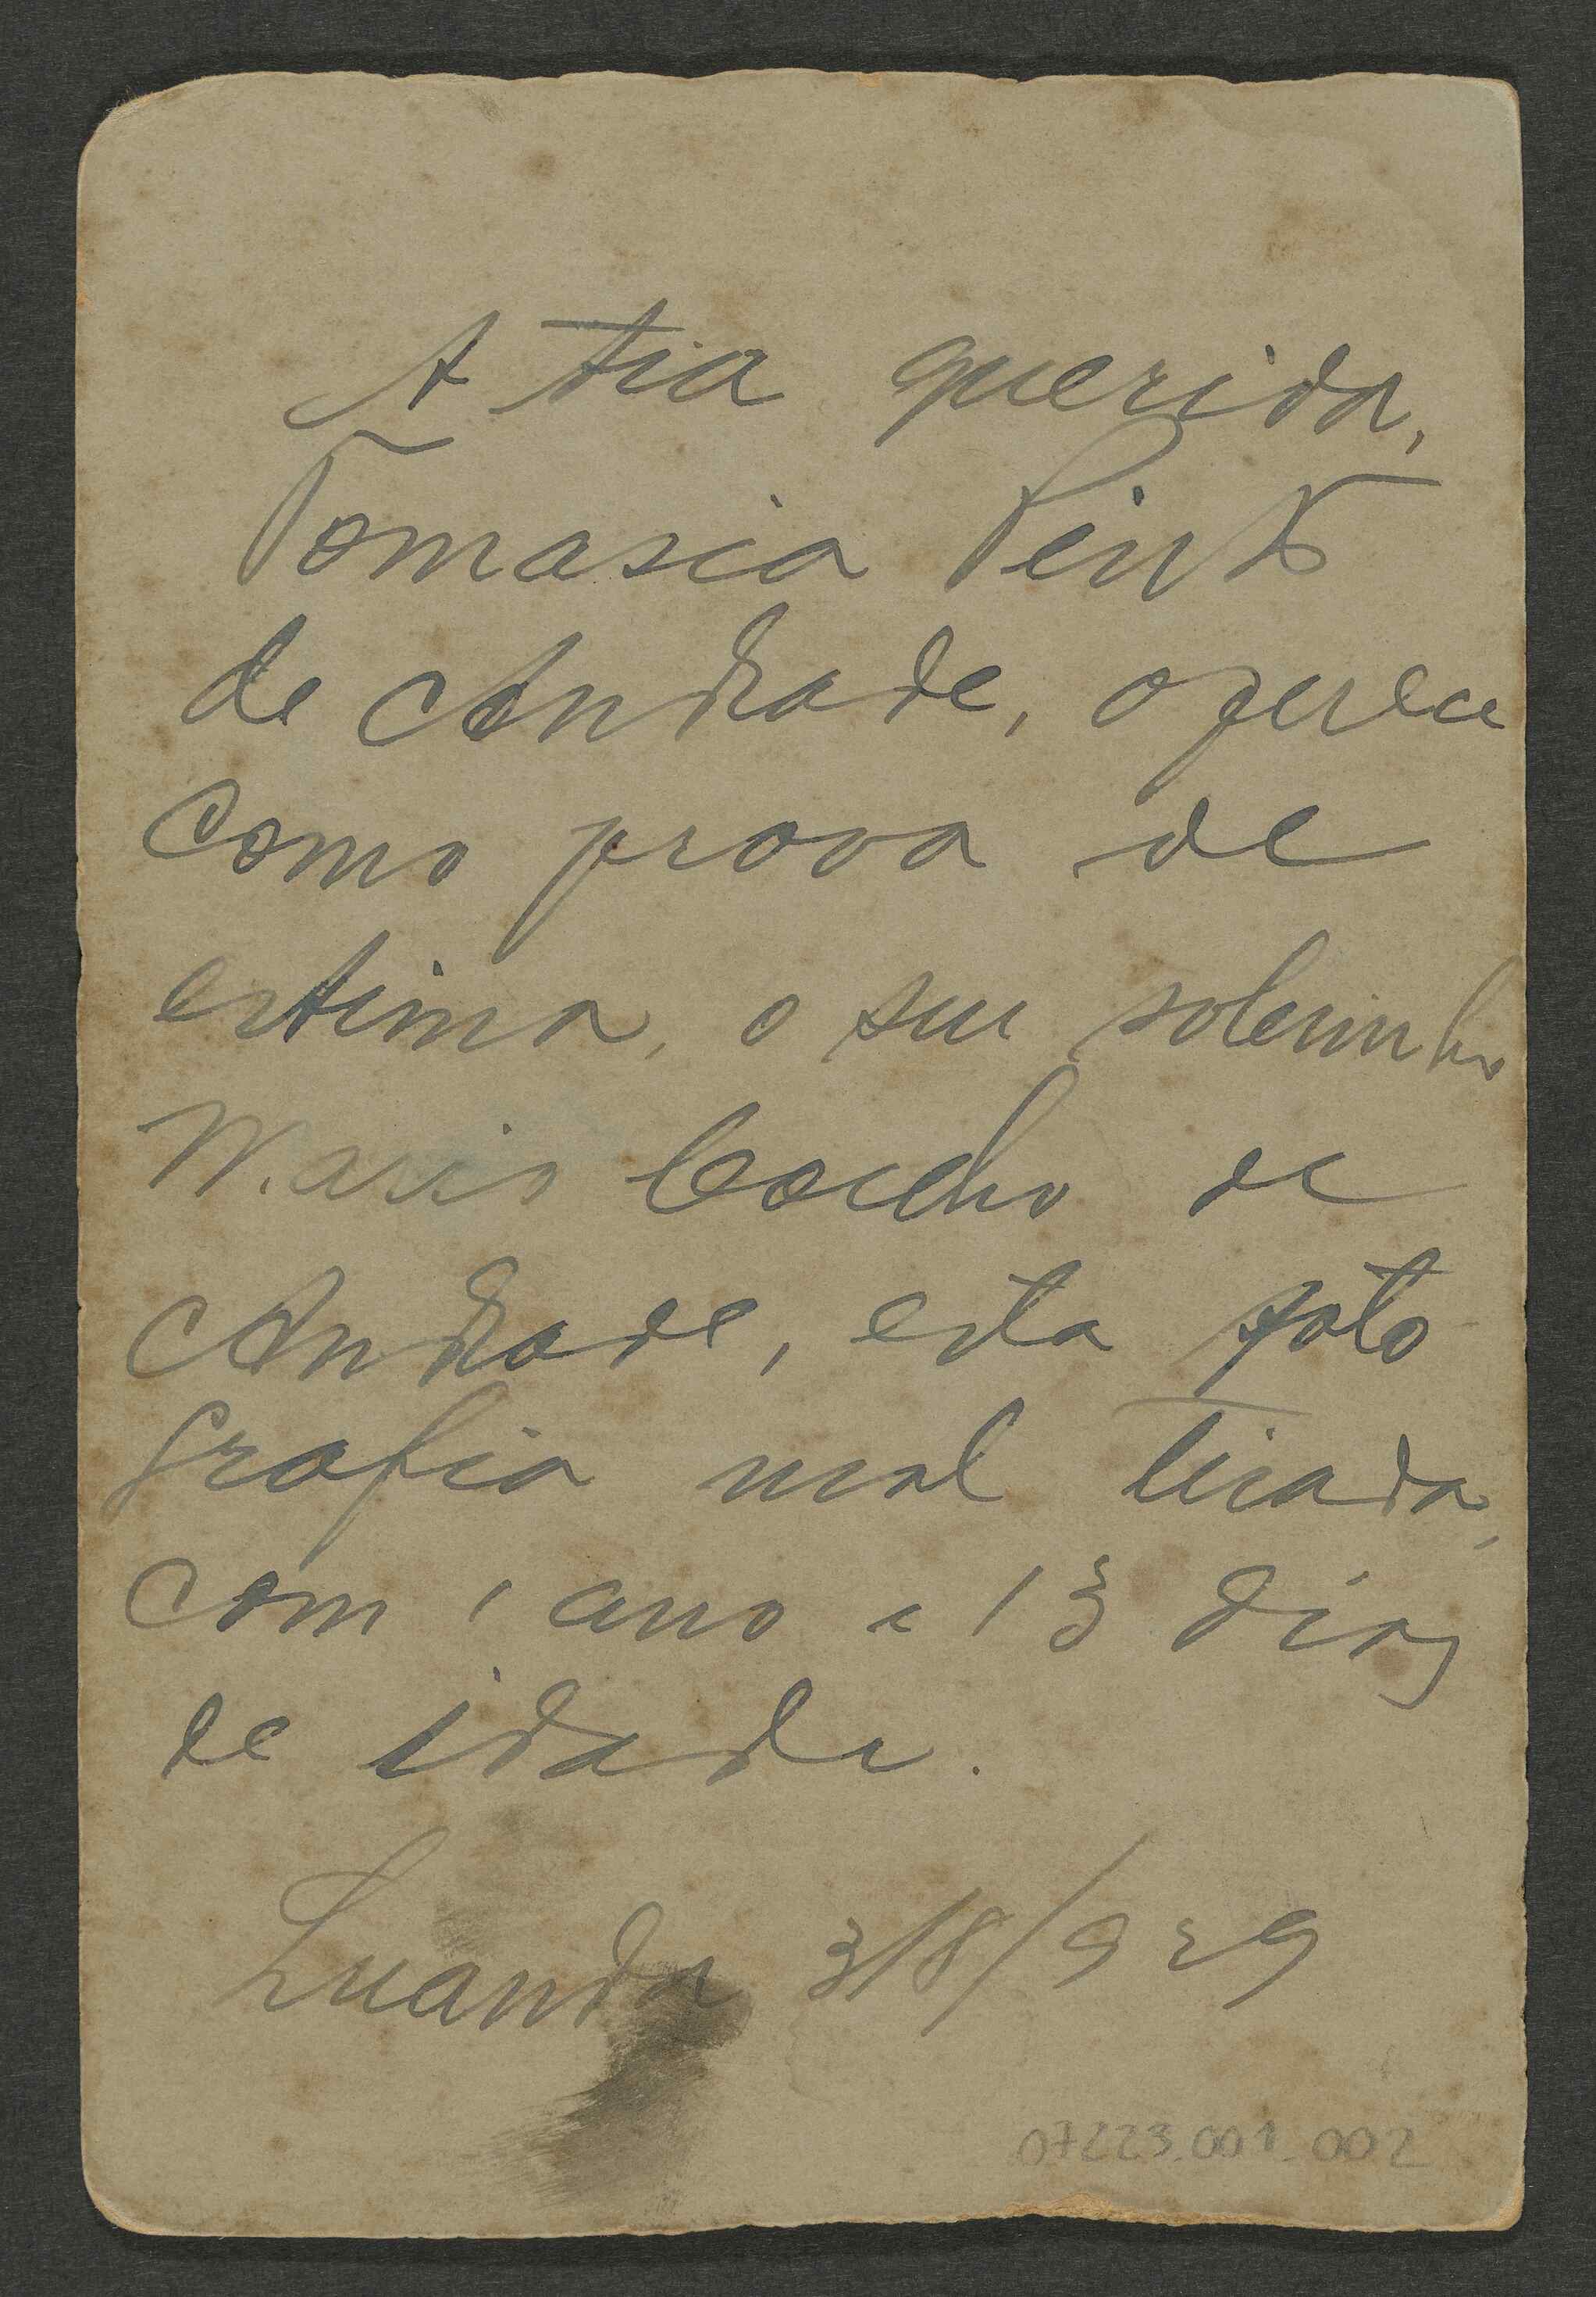 A tia querida,
Tomasia Pinto
de Andrade, oferece
como prova de
estima, o seu sobrinho
Mario Coelho de
Andrade, esta foto
grafia mal tirada,
com 1 ano e 13 dias
de idade.
Luanda 3/8/929
07223.001.002